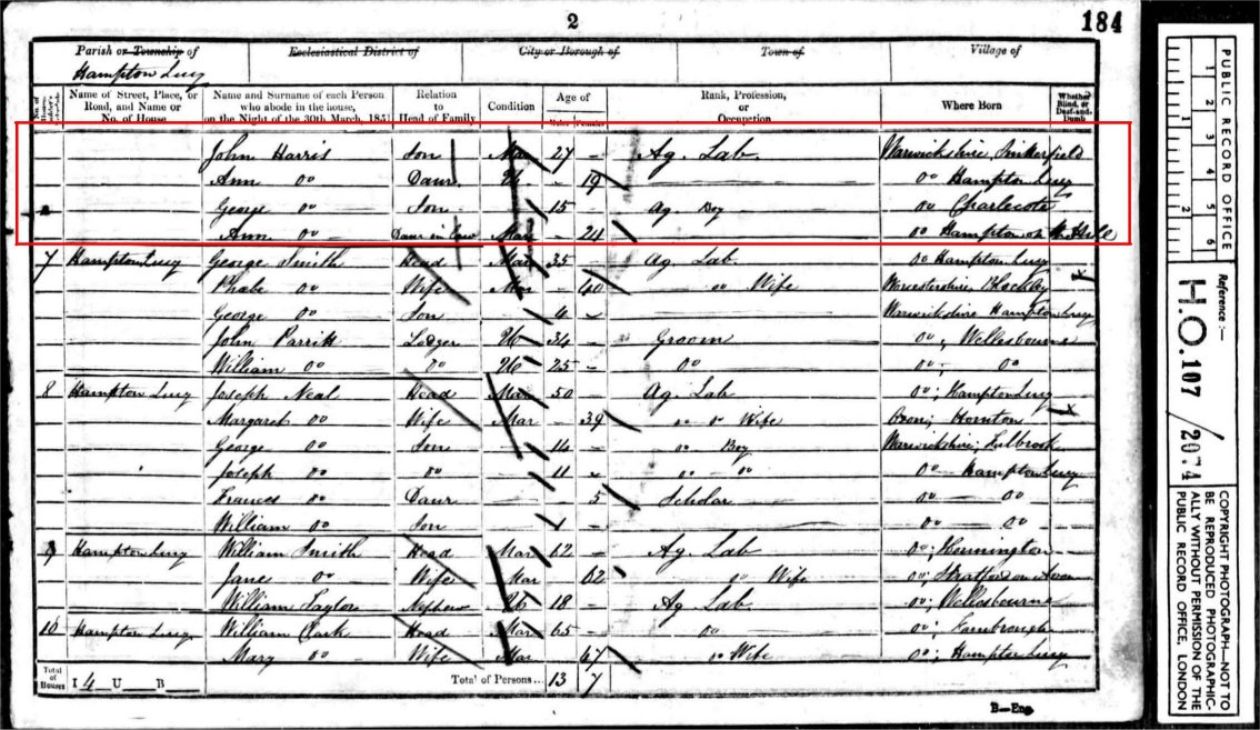 2
184
Parish or Township of Ecclesiastical District of City or Borough of Town of Village of
Hampton Lucy
No. of Name of Street, Place, or Road, and Name or No. of House Name and Surname of each Person who abode in the house, on the Night of the 30th March, 1851 Relation to Head of Family Condition Age of Males Females Rank, Profession, or Occupation Where Born Whether Blind, or Deaf-and-Dumb
John Harris Son Mar 27 – Ag. Lab. Warwickshire, Snitterfield
Ann Do Daur. Un – 19 Do Hampton Lucy
George Do Son 15 Ag. Boy Do Charlecote
Ann Do Daur in law Mar – 24 Do Hampton on the Hill
7 Hampton Lucy George Smith Head Mar 35 Ag. Lab. Do Hampton Lucy
Phabe Do Wife Mar – 40 Do Wife Worcestershire, Blockley x
George Do Son 4 – Warwickshire Hampton Lucy
John Parritt Lodger Un 34 – Groom Do; Wellesbourne
William Do Do Un 25 – Do Do; Do
8 Hampton Lucy Joseph Neal Head Mar 50 Ag. Lab Do; Hampton Lucy
Margaret Do Wife Mar – 39 Do Do Wife Oxon; Hornton x
George Do Son 14 – Do Boy Warwickshire; Fulbrook
Joseph Do Do 11 – Do Do Do Hampton Lucy
Frances Do Daur 5 Scholar Do Do
William Do Son 1 – Do Do
9 Hampton Lucy William Smith Head Mar 62 – Ag. Lab Do;
Jane Do Wife Mar 62 Do Wife Do; Stratford on Avon
William Taylor Nephew Un 18 – Ag. Lab. Do; Wellesbourne
10 Hampton Lucy William Clark Head Mar 65 Do Do;
Mary Do Wife Mar – 67 Do Wife Do; Hampton Lucy
Total of Houses I 4 U B Total of Persons... 13 7
B—Eng.
PUBLIC RECORD OFFICE
1 2 3 4 5 6
1 2
Reference :—
H.O. 107 / 2074
COPYRIGHT PHOTOGRAPH—NOT TO
BE REPRODUCED PHOTOGRAPHIC-
ALLY WITHOUT PERMISSION OF THE
PUBLIC RECORD OFFICE, LONDON